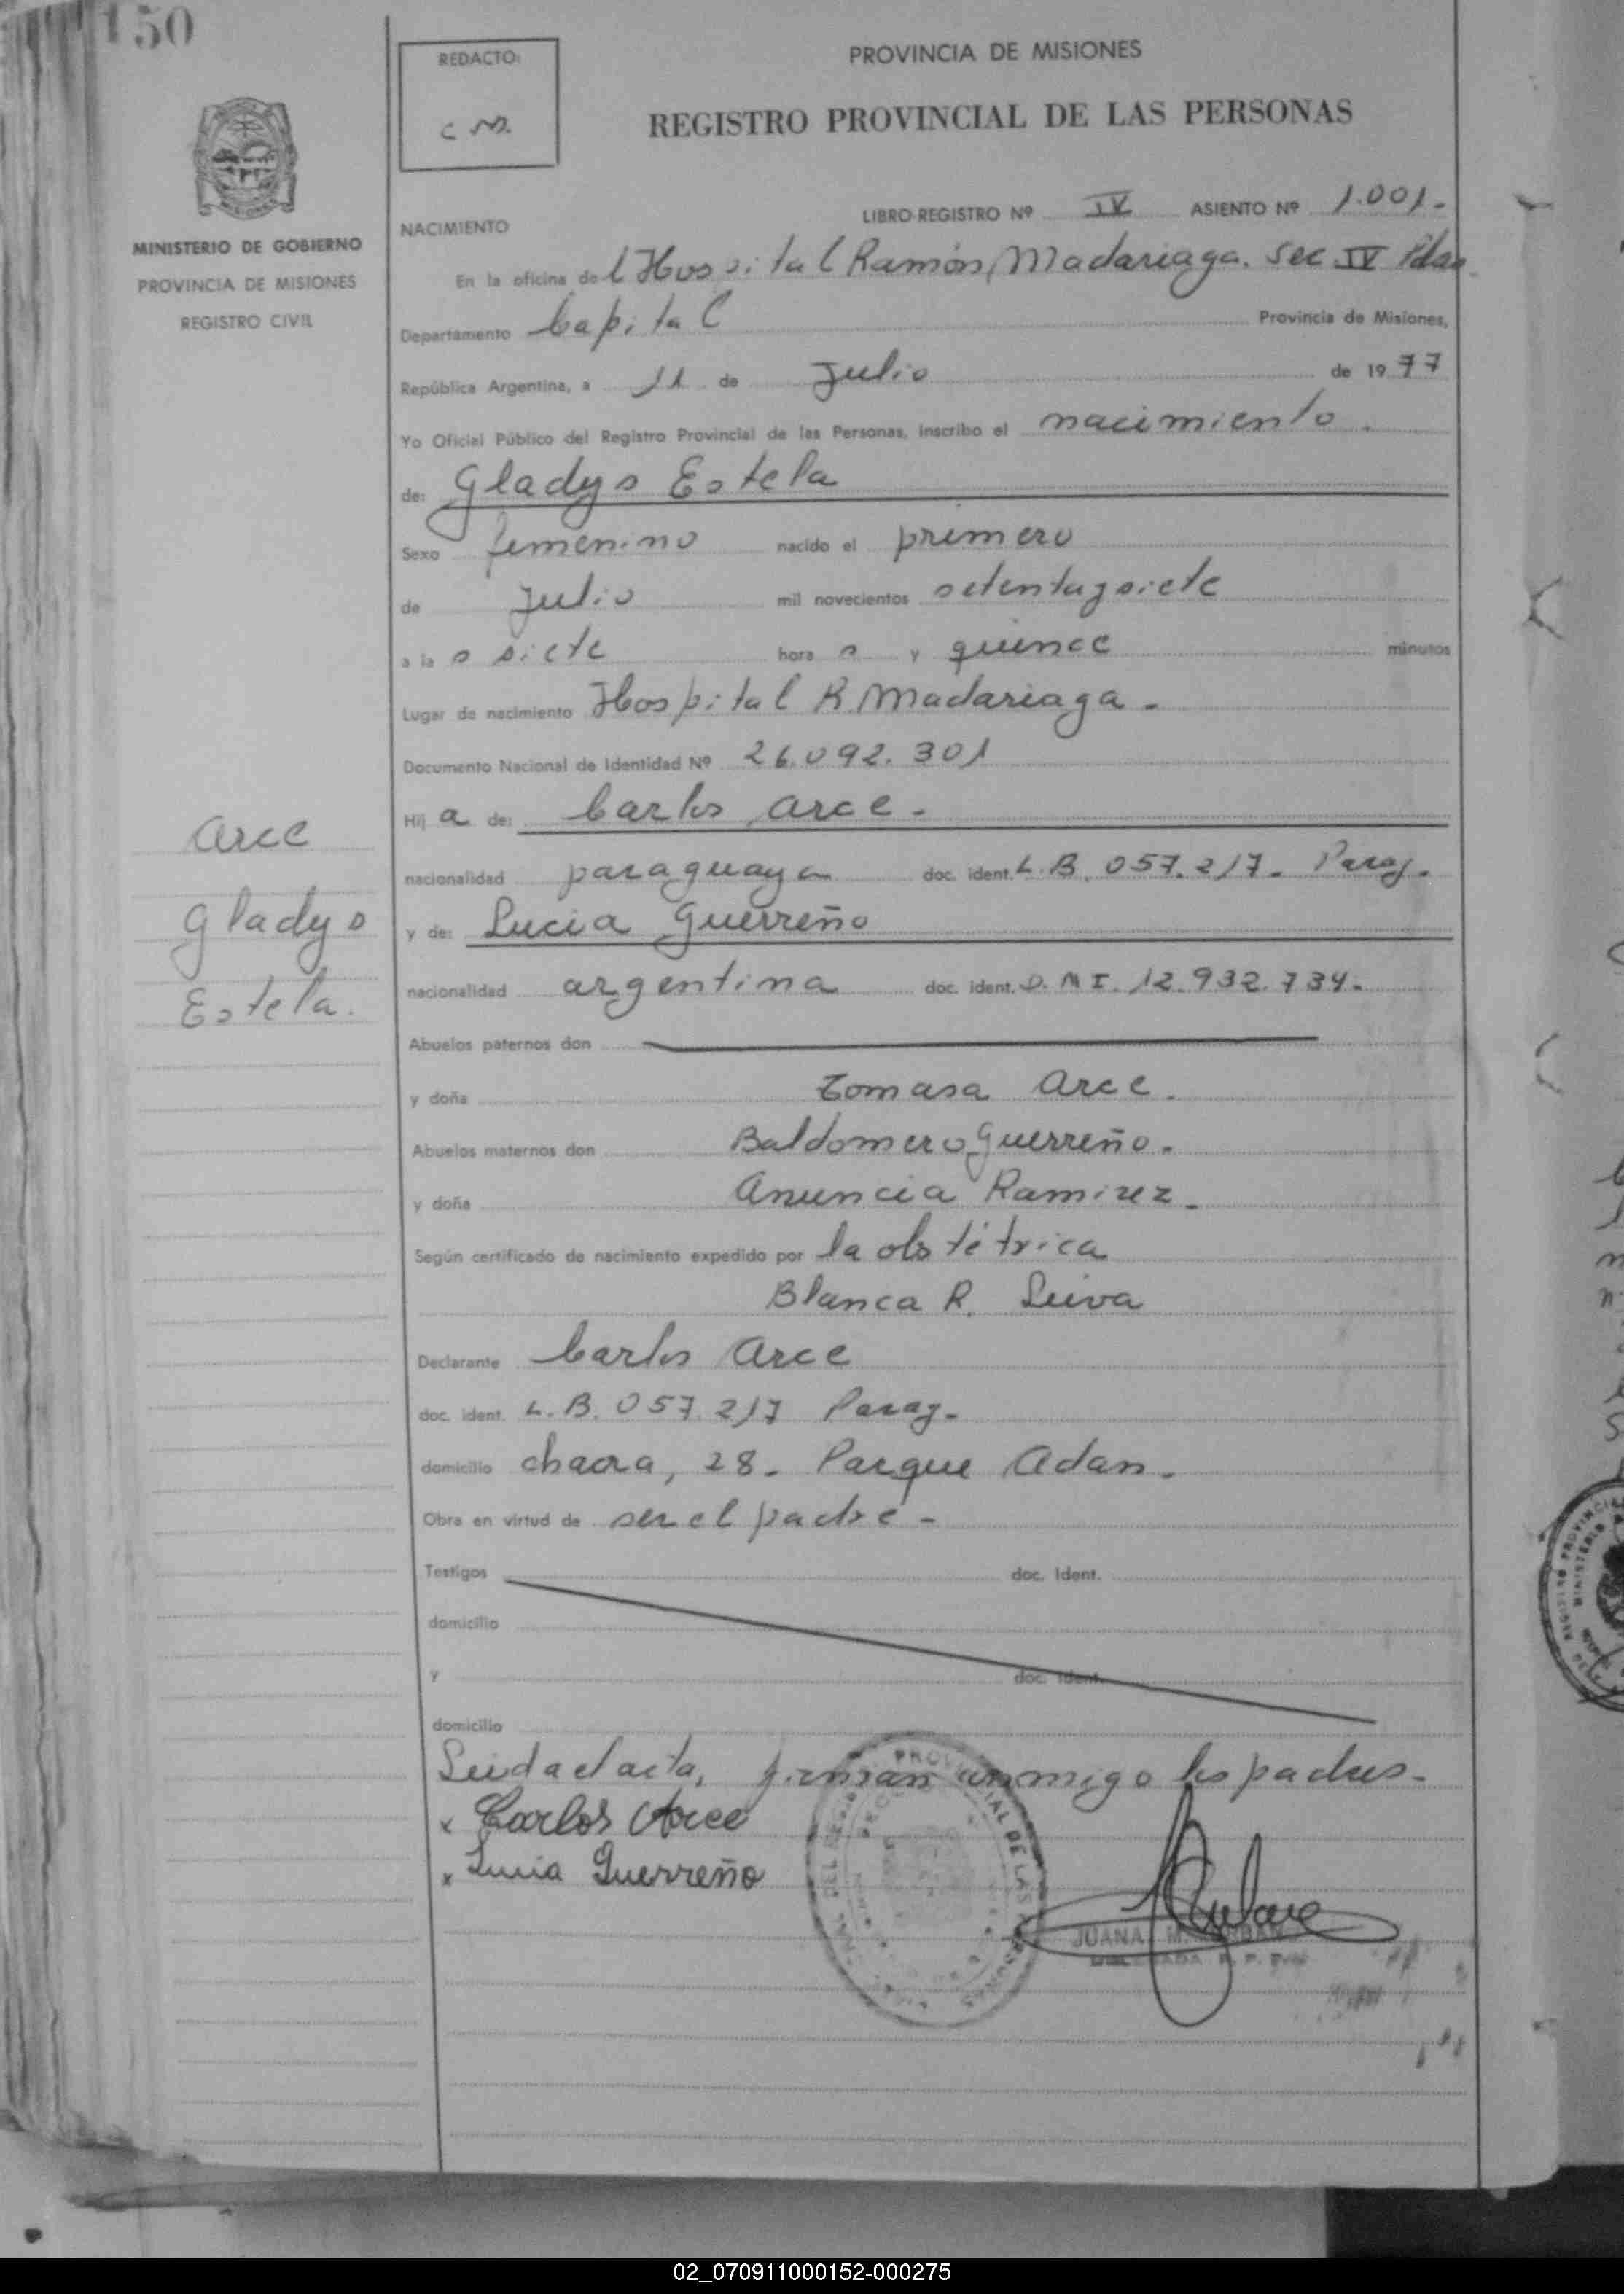 150
REDACTO:
C M.
PROVINCIA DE MISIONES
REGISTRO PROVINCIAL DE LAS PERSONAS
MINISTERIO DE GOBIERNO
PROVINCIA DE MISIONES
REGISTRO CIVIL
LIBRO-REGISTRO Nº IV ASIENTO Nº 1.001.-
NACIMIENTO
En la oficina del Hospital Ramón Madariaga. Sec IV Pdas
Departamento Capital Provincia de Misiones,
República Argentina, a 11 de Julio de 1977
Yo Oficial Público del Registro Provincial de las Personas, inscribo el nacimiento.
de: Gladys Estela
Sexo femenino nacido el primero
de Julio mil novecientos setentaysiete
a la s siete hora s y quince minutos
Lugar de nacimiento Hospital R. Madariaga.-
Documento Nacional de Identidad Nº 26.092.301
Hij a de: Carlos Arce.-
nacionalidad paraguaya doc. ident. L.B. 057.217.- Parag.
y de: Lucia Guerreño
nacionalidad argentina doc. ident. D.N I. 12.932.734.
Arce
Gladys
Estela.
Abuelos paternos don
y doña Tomasa Arce.
Abuelos maternos don Baldomero Guerreño.
y doña Anuncia Ramirez.
Según certificado de nacimiento expedido por la obstétrica
Blanca R. Leiva
Declarante Carlos Arce
doc. ident. L.B. 057.217 Parag.
domicilio chacra, 28. Parque Adan.
Obra en virtud de ser el padre -
Testigos doc. Ident.
domicilio
y doc. Ident.
domicilio
Leida el acta, firman conmigo los padres.-
x Carlos Arce
x Lucia Guerreño
JUANA M.
02_070911000152-000275